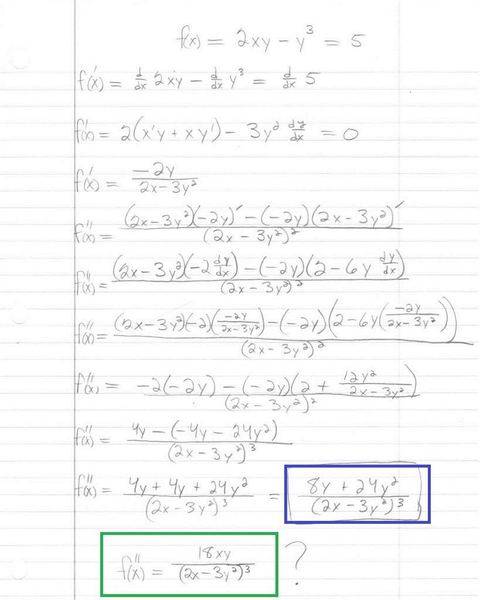 f(x) = 2xy - y³ = 5
f'(x) = d/dx 2xy - d/dx y³ = d/dx 5
f'(x) = 2(x'y + xy') - 3y² dy/dx = 0
f'(x) = -2y/(2x - 3y²)
f''(x) = ((2x - 3y²)(-2y)' - (-2y)(2x - 3y²)')/(2x - 3y²)²
f''(x) = ((2x - 3y²)(-2 dy/dx) - (-2y)(2 - 6y dy/dx))/(2x - 3y²)²
f''(x) = ((2x - 3y²)(-2)(-2y/(2x - 3y²)) - (-2y)(2 - 6y(-2y/(2x - 3y²))))/(2x - 3y²)²
f''(x) = (-2(-2y) - (-2y)(2 + 12y²/(2x - 3y²)))/(2x - 3y²)²
f''(x) = (4y - (-4y - 24y²))/(2x - 3y²)³
f''(x) = (4y + 4y + 24y²)/(2x - 3y²)³ = (8y + 24y²)/(2x - 3y²)³
f''(x) = 18xy/(2x - 3y²)³ ?